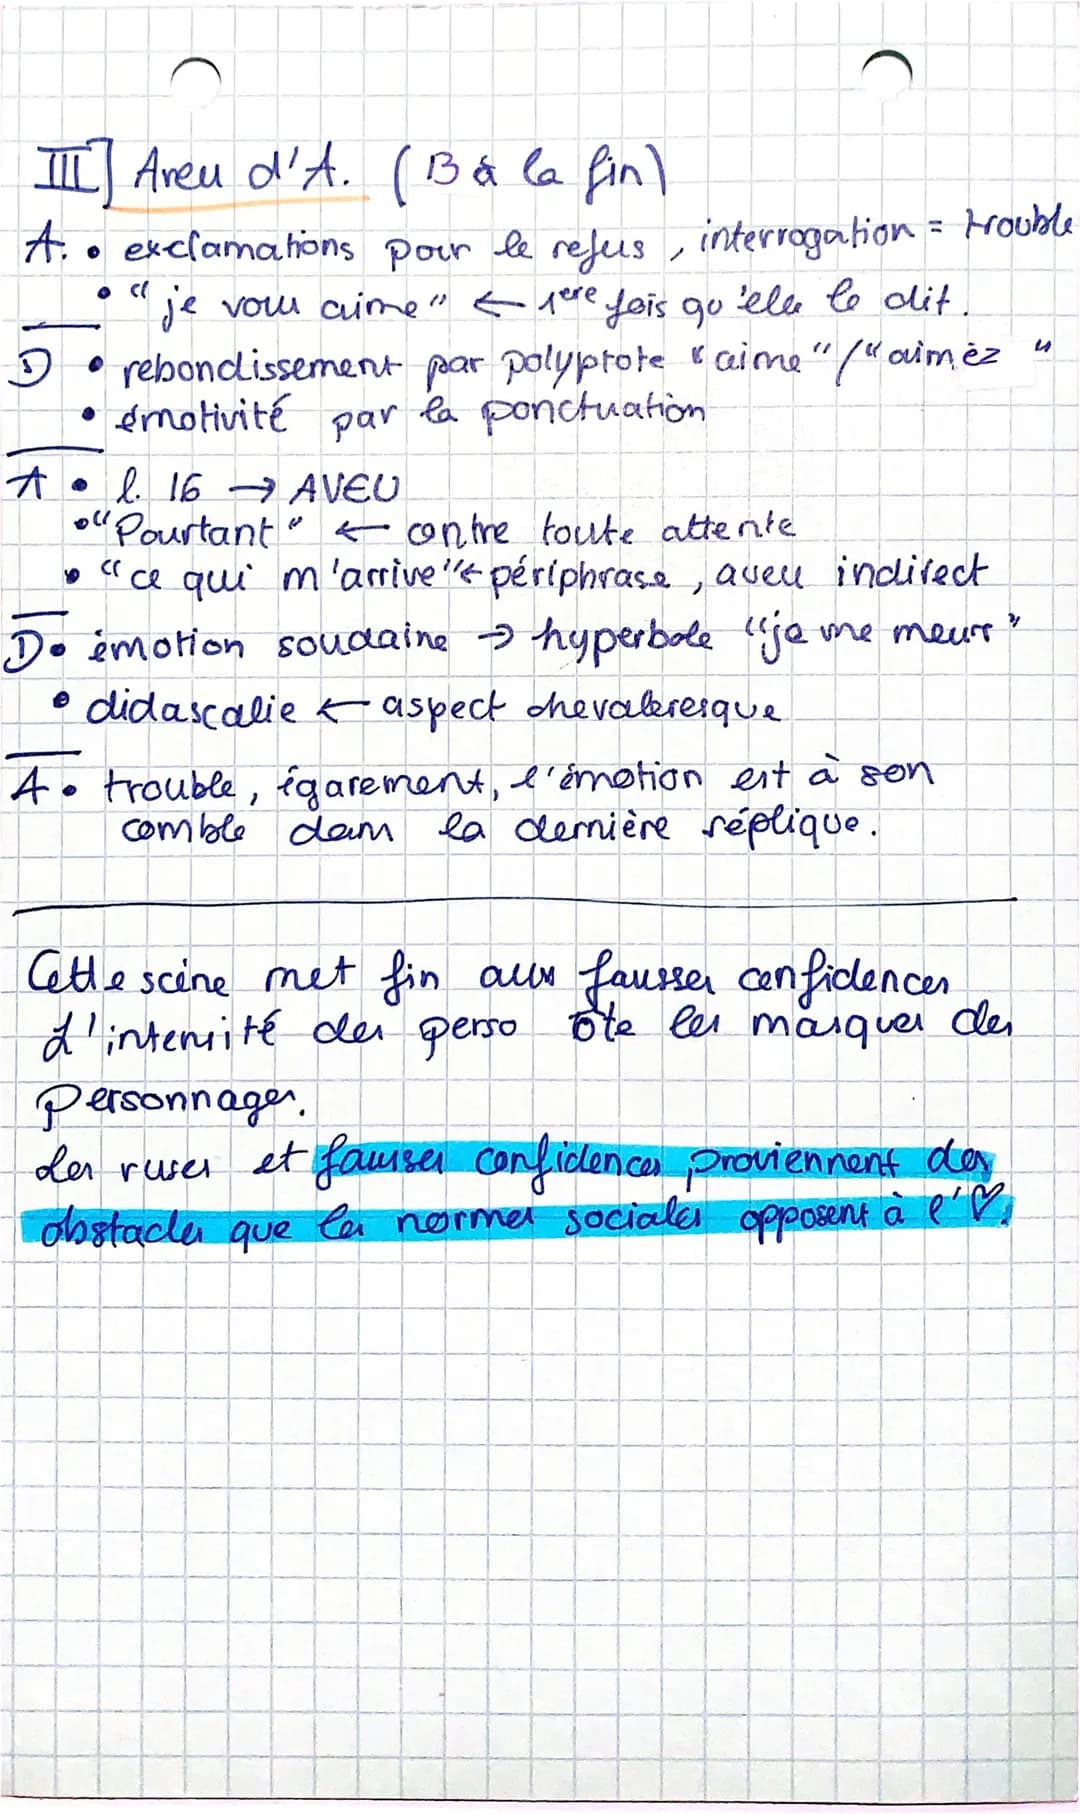 III] Aveu d'A. (13 à la fin)
A. • exclamations pour le refus, interrogation = trouble
• "je vous aime" ← 1ère fois qu'elle le dit.
D • rebondissement par polyptote "aime"/"aimez"
• émotivité par la ponctuation
A • l. 16 → AVEU
• "Pourtant" ← contre toute attente
• "ce qui m'arrive" ← périphrase, aveu indirect
D • émotion soudaine → hyperbole "je me meurs"
• didascalie ← aspect chevaleresque
A • trouble, égarement, l'émotion est à son
comble dans la dernière réplique.
Cette scène met fin aux fausses confidences
L'intensité des perso ôte les masques des
personnages.
Les ruses et fausses confidences proviennent des
obstacles que les normes sociales opposent à l'♡.